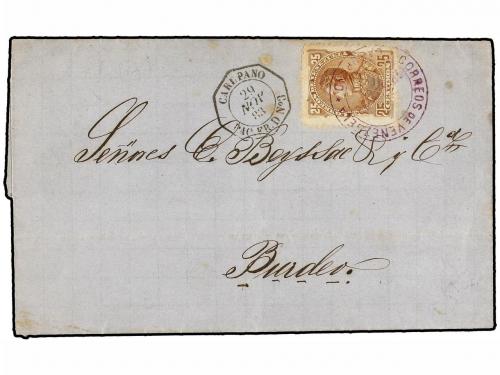 CARUPANO
29
NOV
83
PAQ. FR. D Nº3
25
25
25
25
CORREOS DE VENEZUELA
Señores C. Beyssac R. y Cª
Burdeos.